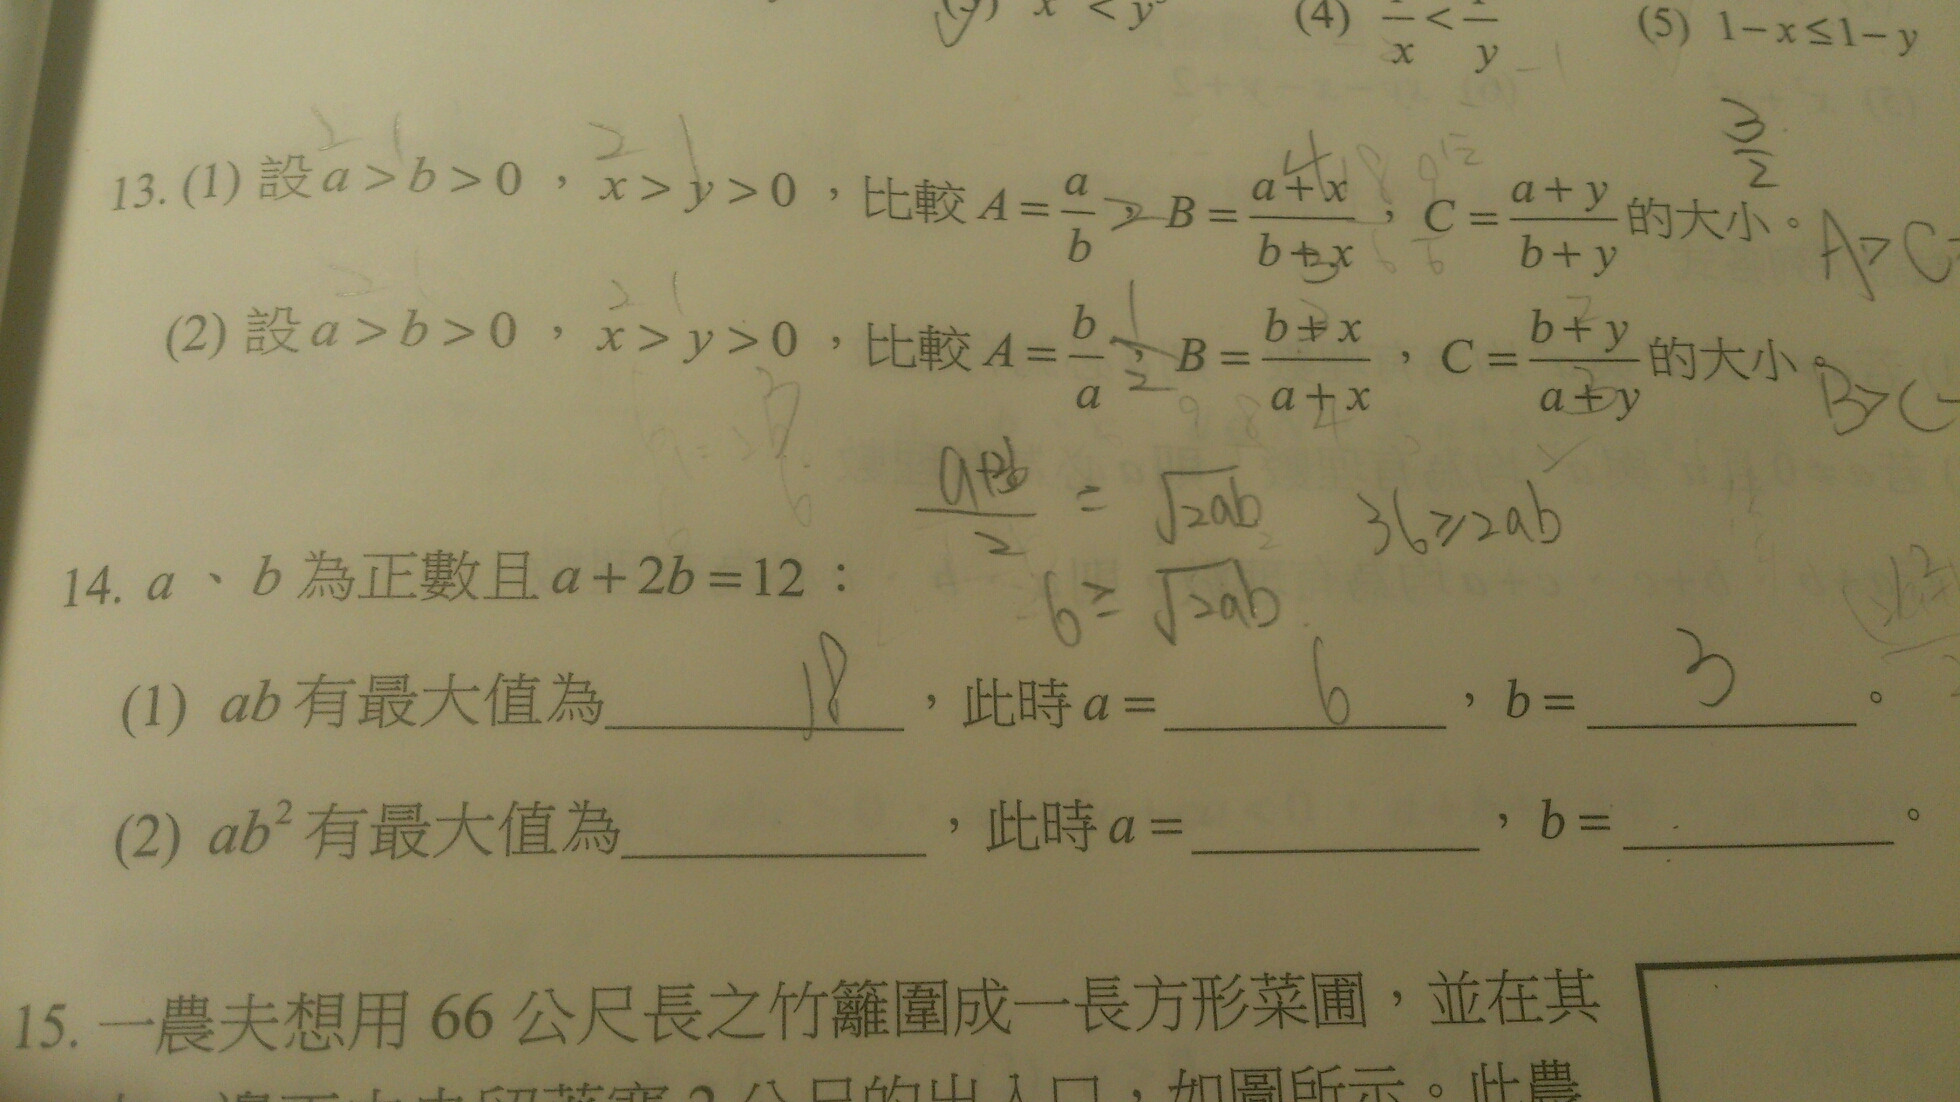 (3) x < y (4) 1/x < 1/y (5) 1−x≤1−y
3/2
13. (1) 設 a > b > 0 ， x > y > 0 ，比較 A = a/b ， B = (a+x)/(b+x) ， C = (a+y)/(b+y) 的大小。 A>C
(2) 設 a > b > 0 ， x > y > 0 ，比較 A = b/a ， B = (b+x)/(a+x) ， C = (b+y)/(a+y) 的大小。 B>C
= √2ab 36≥2ab
14. a 、 b 為正數且 a + 2b = 12 : 6≥ √2ab
(1) ab 有最大值為 18 ，此時 a = 6 ， b = 3 。
(2) ab² 有最大值為 ，此時 a = ， b = 。
15. 一農夫想用 66 公尺長之竹籬圍成一長方形菜圃，並在其
2 公尺的出入口，如圖所示。此農